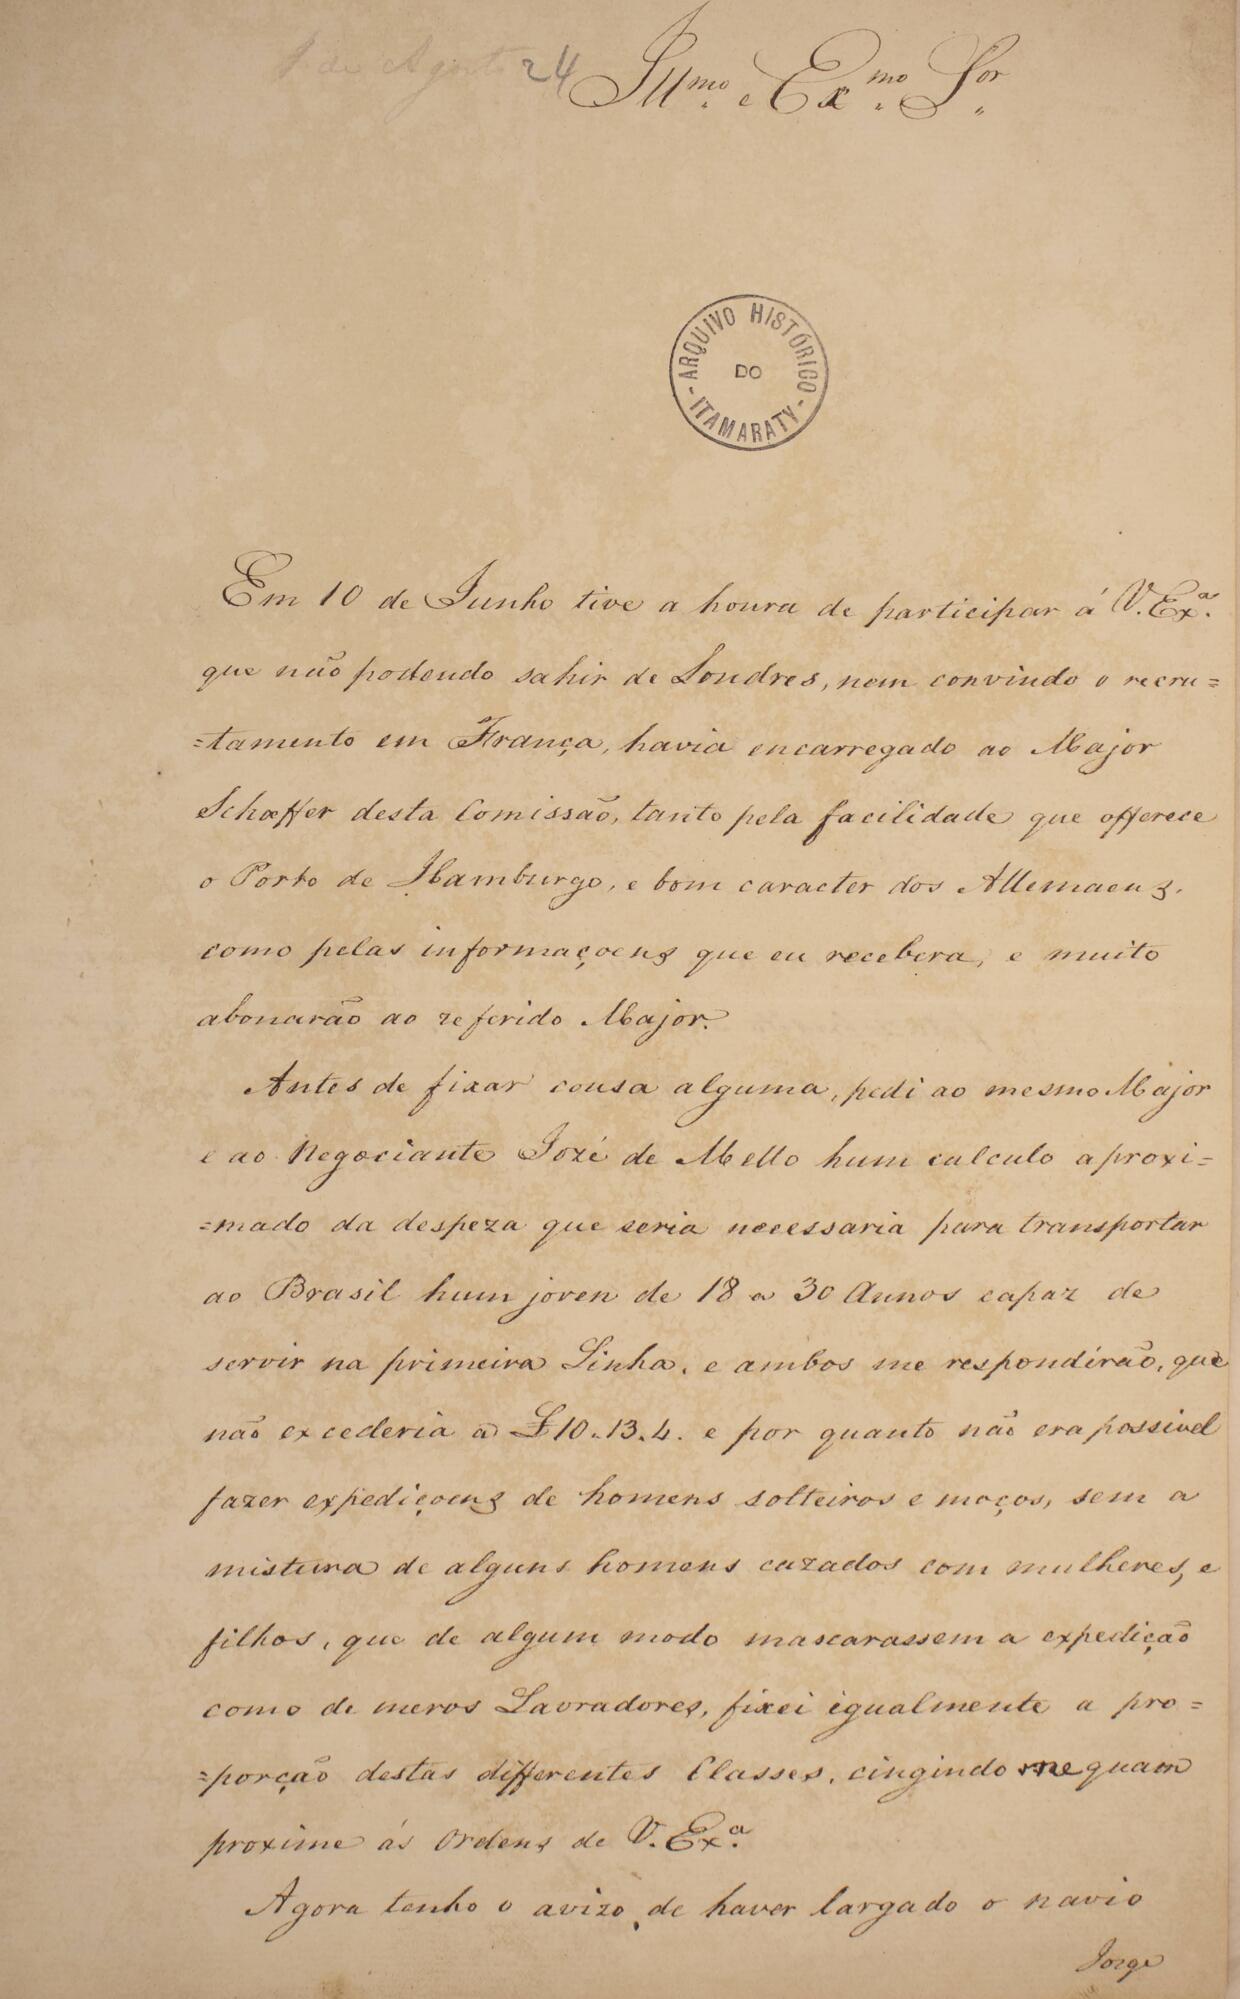 1 de Agosto 24
Illmo. e Exmo. Sor.
ARQUIVO HISTÓRICO
DO
- ITAMARATY -
Em 10 de Junho tive a honra de participar á V. Exa.
que não podendo sahir de Londres, nem convindo o recru=
=tamento em França, havia encarregado ao Major
Schæffer desta Comissão, tanto pela facilidade que offerece
o Porto de Hamburgo, e bom caracter dos Allemaens,
como pelas informaçoens que eu recebera, e muito
abonarão ao referido Major.
Antes de fixar cousa alguma, pedi ao mesmo Major
e ao Negociante Jozé de Mello hum calculo aproxi=
=mado da despeza que seria necessaria para transportar
ao Brasil hum joven de 18 a 30 Annos capaz de
servir na primeira Linha, e ambos me respondirão, que
não excederia a £10.13.4. e por quanto não era possivel
fazer expediçoens de homens solteiros e moços, sem a
mistura de alguns homens cazados com mulheres, e
filhos, que de algum modo mascarassem a expedição
como de meros Lavradores, fixei igualmente a pro=
=porção destas differentes Classes, cingindo me quam
proxime ás Ordens de V. Exa.
Agora tenho o avizo de haver largado o navio
Jorge